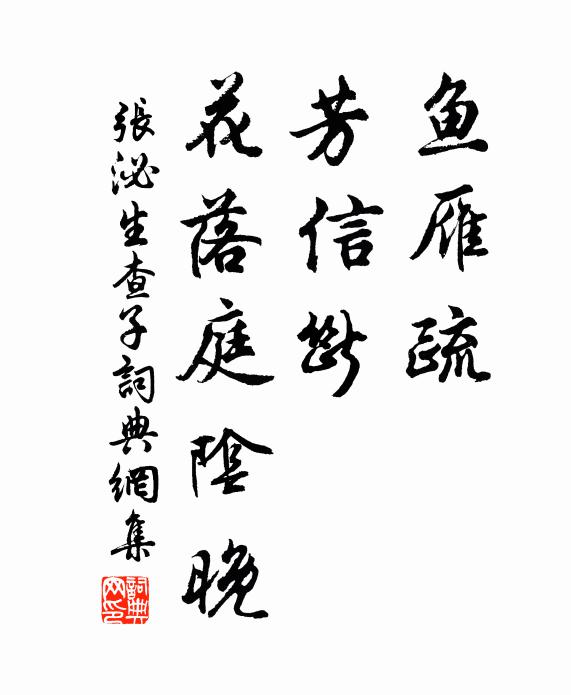 鱼雁疏
芳信斷
花落庭陰晚
張泌生查子詞典網集
詞典网印